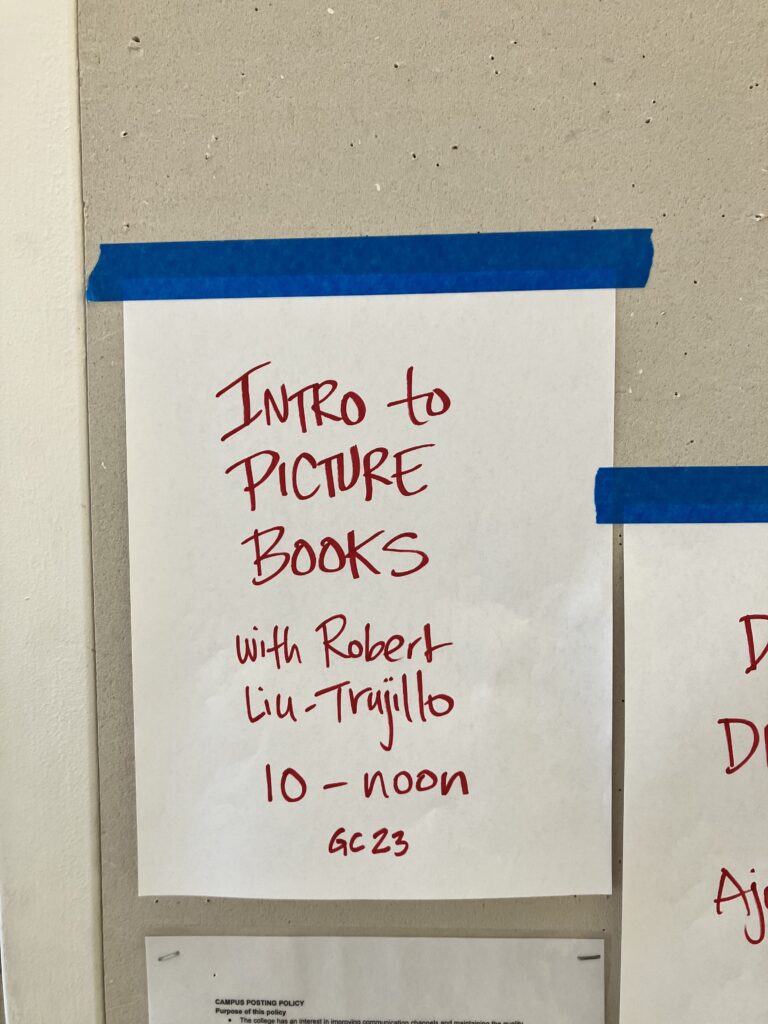 INTRO to
PICTURE
BOOKS
with Robert
Liu-Trujillo
10 – noon
GC23
CAMPUS POSTING POLICY
Purpose of this policy
• The college has an interest in improving communication channels and maintaining the quality